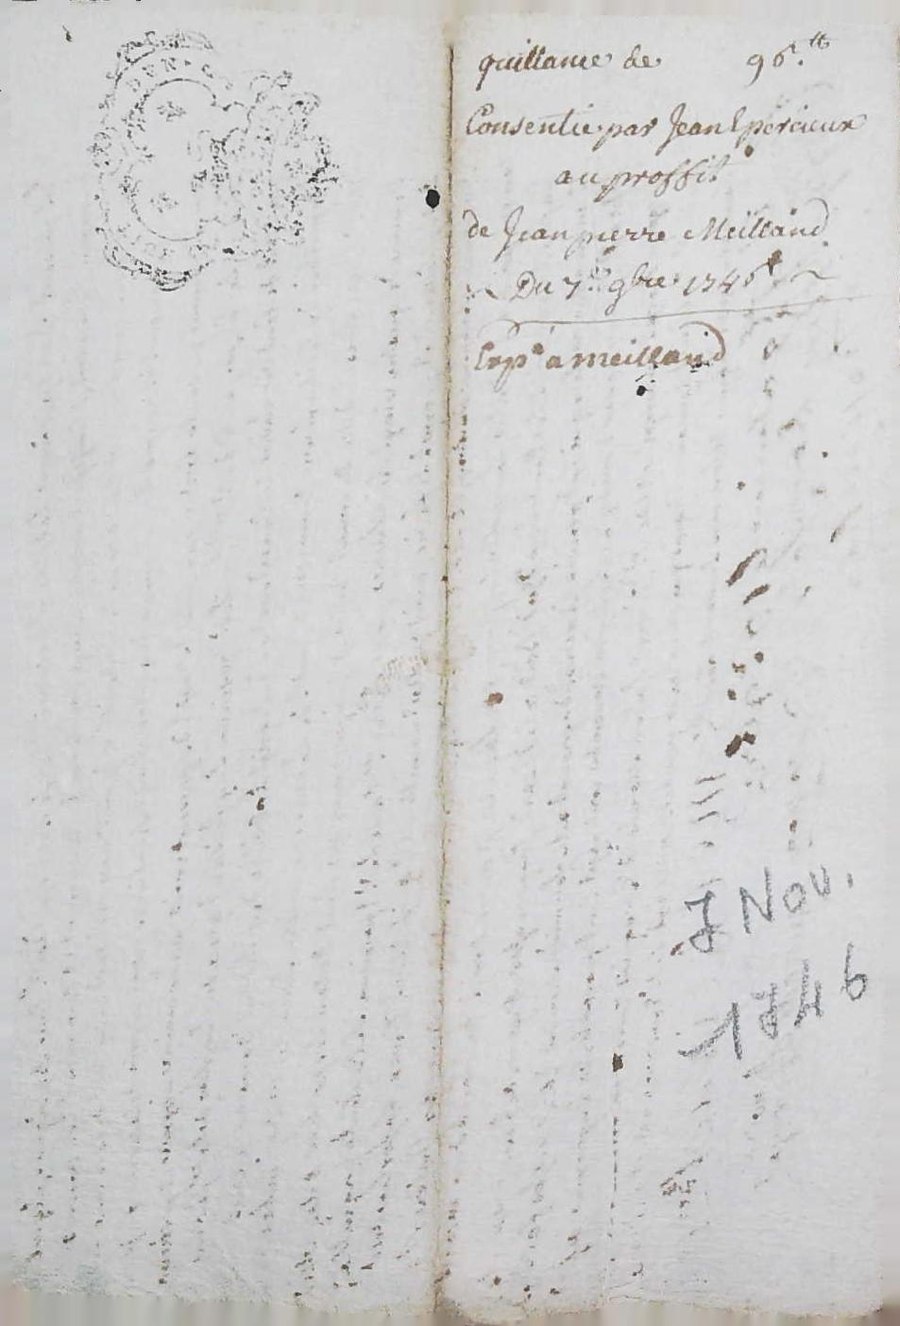 quittance de 96.tt
Consentie par Jean Epercieux
au proffit
de Jean pierre Meilland
Du 7.e 9bre 1746
Exp.e a meilland
7 Nov.
1746